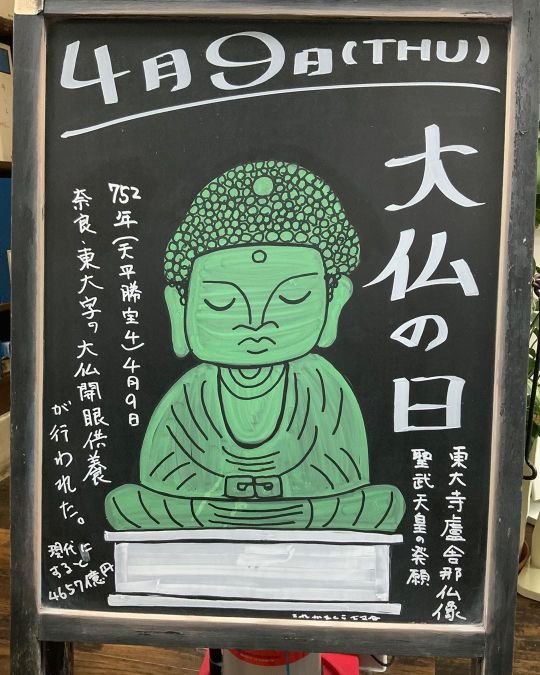 4月9日(THU)
大仏の日
東大寺盧舎那仏像
聖武天皇の発願
752年(天平勝宝4)4月9日
奈良・東大字ヲ大仏開眼供養
が行われた。
現代に
すると
4657億円